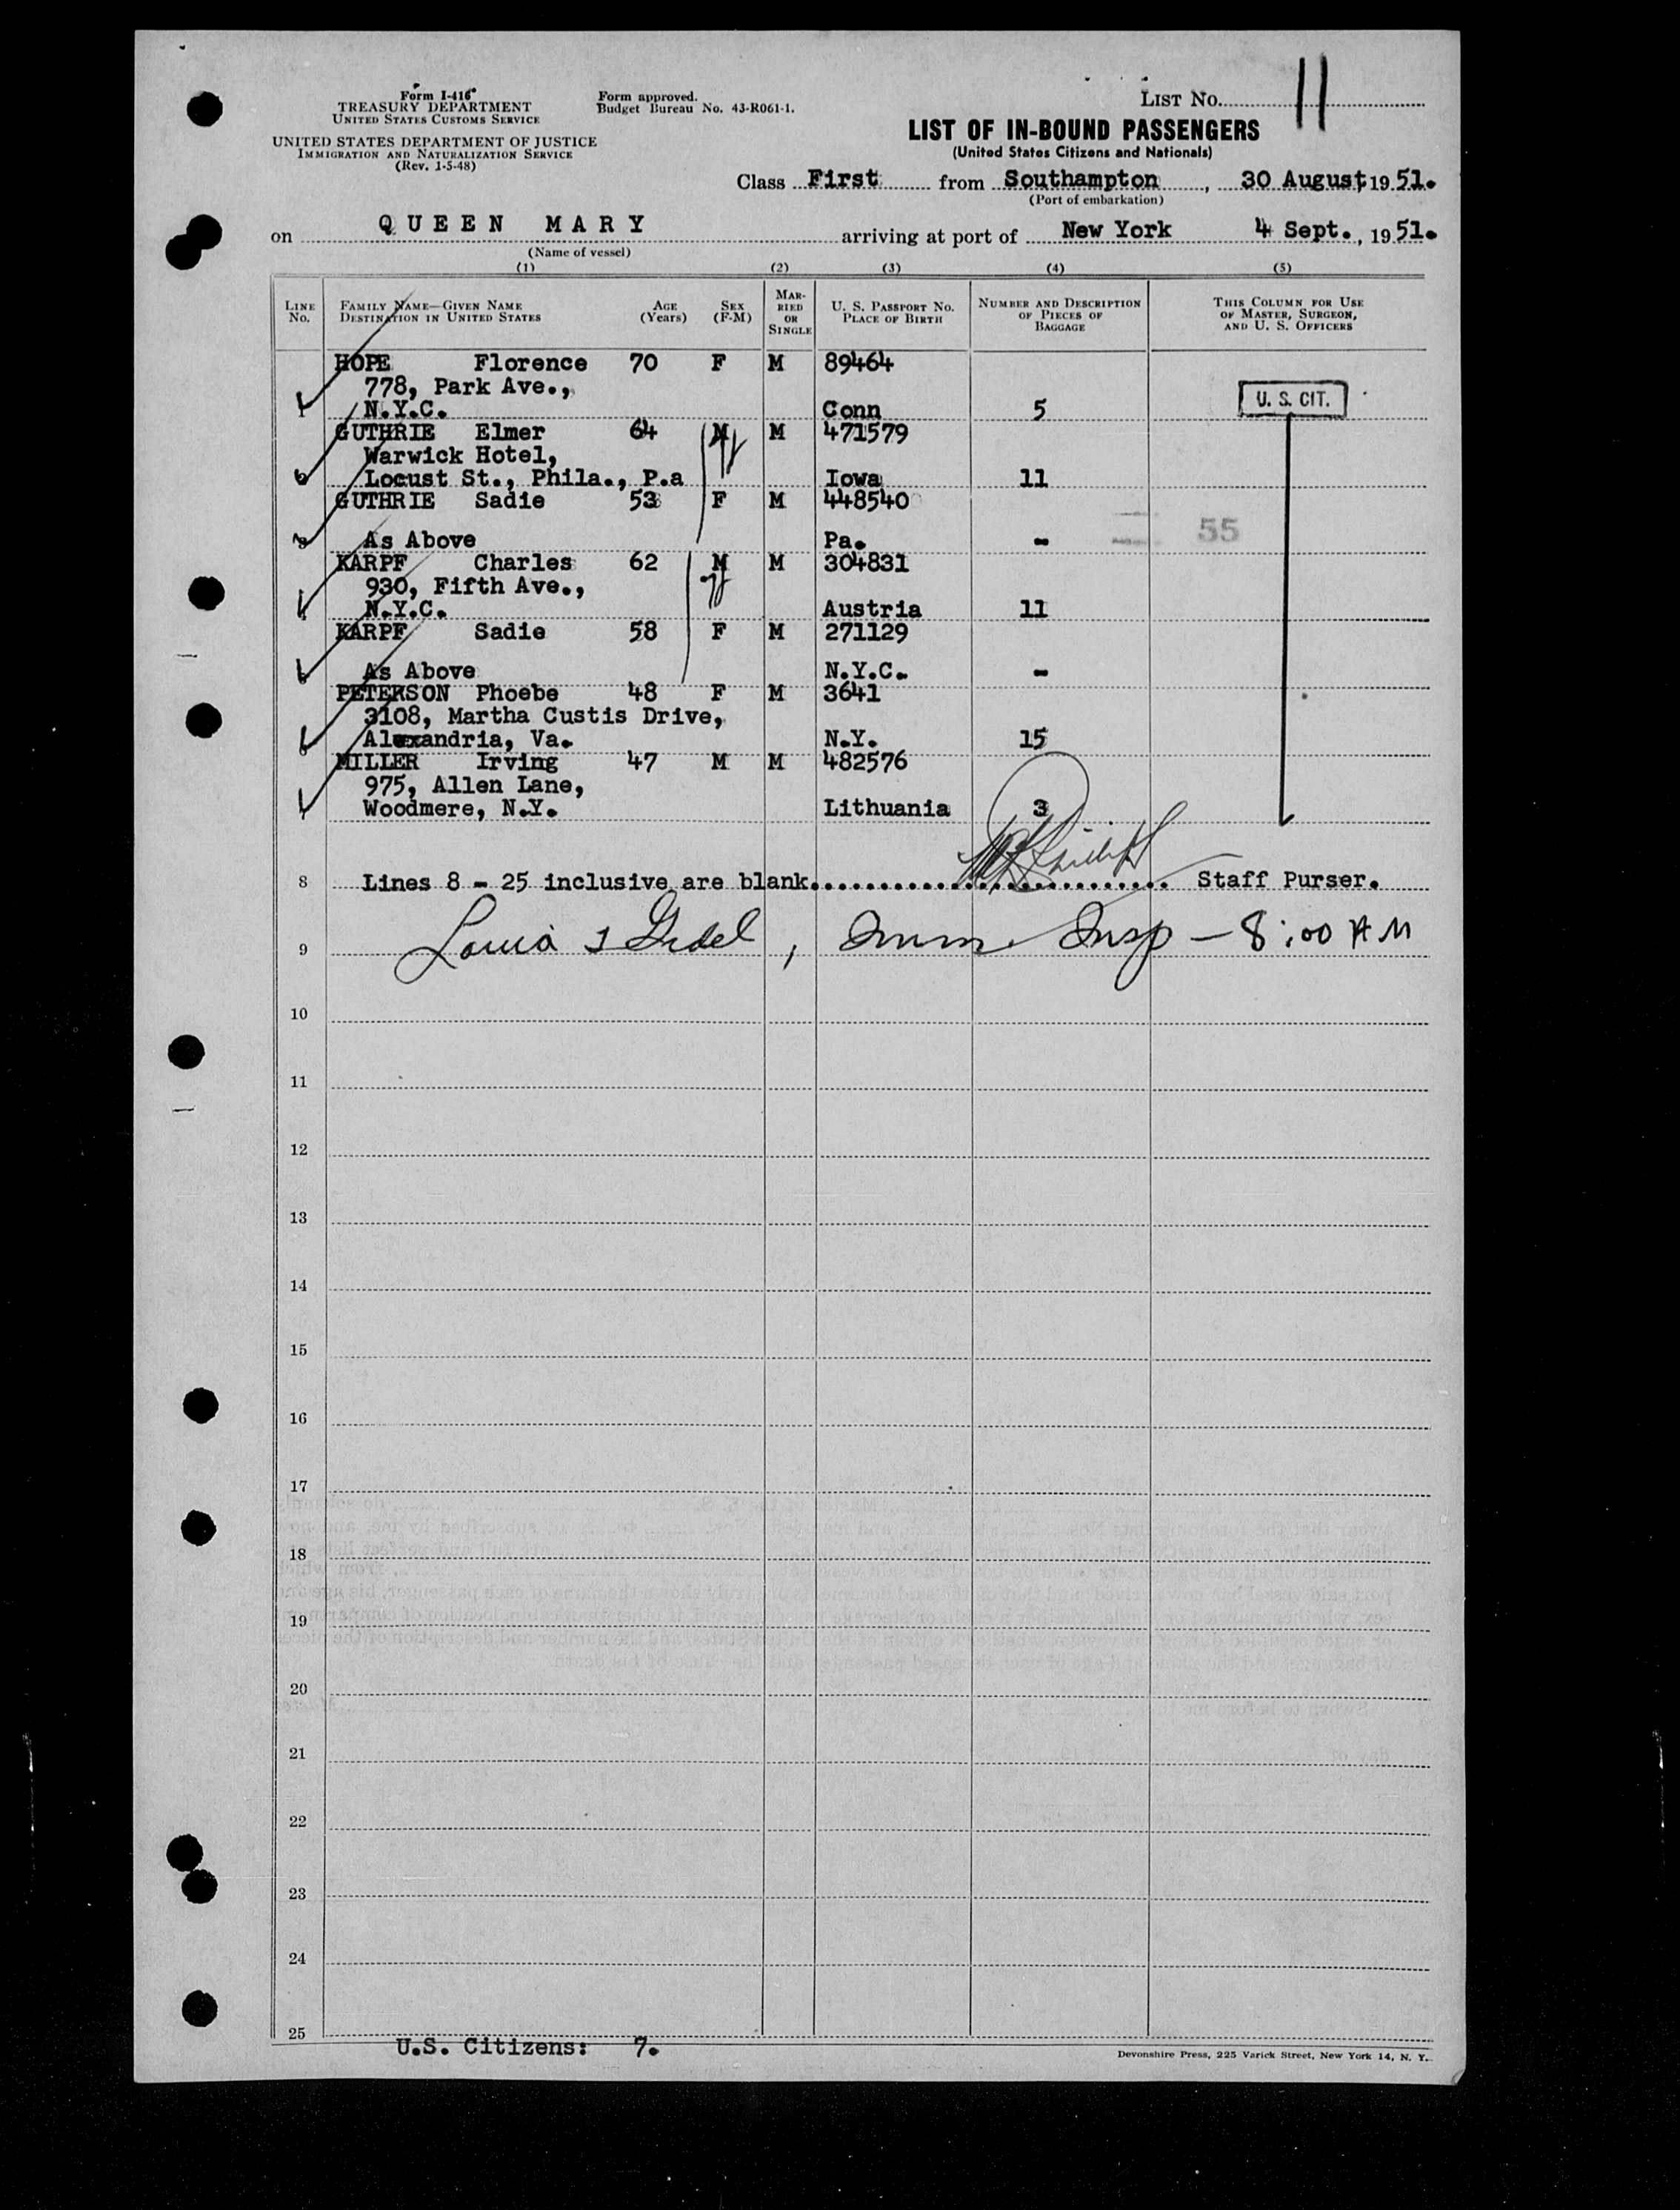 Form I-416
TREASURY DEPARTMENT
UNITED STATES CUSTOMS SERVICE
UNITED STATES DEPARTMENT OF JUSTICE
IMMIGRATION AND NATURALIZATION SERVICE
(Rev. 1-5-48)
Form approved.
Budget Bureau No. 43-R061-1.
LIST No. 11
LIST OF IN-BOUND PASSENGERS
(United States Citizens and Nationals)
Class First from Southampton, 30 August, 1951.
(Port of embarkation)
on QUEEN MARY arriving at port of New York 4 Sept., 1951.
(Name of vessel)
(1) (2) (3) (4) (5)
LINE No. FAMILY NAME—GIVEN NAME DESTINATION IN UNITED STATES AGE (Years) SEX (F-M) MARRIED OR SINGLE U. S. PASSPORT NO. PLACE OF BIRTH NUMBER AND DESCRIPTION OF PIECES OF BAGGAGE THIS COLUMN FOR USE OF MASTER, SURGEON, AND U. S. OFFICERS
HOPE Florence 70 F M 89464
778, Park Ave.,
N.Y.C. Conn 5 U. S. CIT.
GUTHRIE Elmer 64 M M 471579
Warwick Hotel,
Locust St., Phila., P.a Iowa 11
GUTHRIE Sadie 53 F M 448540
As Above Pa. - 55
KARPF Charles 62 M M 304831
930, Fifth Ave.,
N.Y.C. Austria 11
KARPF Sadie 58 F M 271129
As Above N.Y.C. -
PETERSON Phoebe 48 F M 3641
3108, Martha Custis Drive,
Alexandria, Va. N.Y. 15
MILLER Irving 47 M M 482576
975, Allen Lane,
Woodmere, N.Y. Lithuania 3
8 Lines 8 - 25 inclusive are blank. Staff Purser.
9 Imm Insp - 8:00 AM
10
11
12
13
14
15
16
17
18
19
20
21
22
23
24
25
U.S. Citizens: 7.
Devonshire Press, 225 Varick Street, New York 14, N. Y.